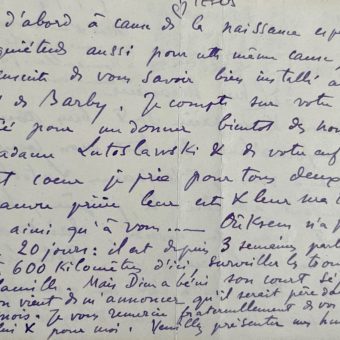 d'abord à cause de la naissance esp
quiétude aussi pour cette même cause,
ensuite de vous savoir bien installé à
de Barby. Je compte sur votre
pour me donner bientôt des nou
adame Lutoslawski & de votre enf
t coeur je prie pour tous deux
auvre prière leur est & leur sera
ainsi qu'à vous
n'a p
20 jours: il est depuis 3 semaines parti
à 600 kilomètres d'ici, surveiller les trou
famille. Mais Dieu a béni son court sé
on vient de m'annoncer qu'il serait père da
mois. Je vous remercie fraternellement de vos
lui & pour moi. Veuillez présenter mes hum